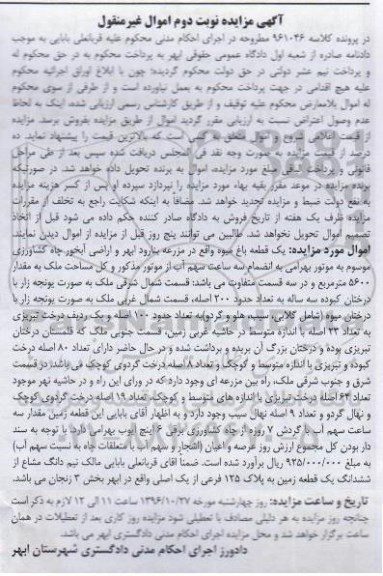 آگهی مزایده نوبت دوم اموال غیرمنقول
در پرونده کلاسه ۹۶۱۰۴۶ مطروحه در اجرای احکام مدنی محکوم علیه قربانعلی بابایی به موجب
دادنامه صادره از شعبه اول دادگاه عمومی حقوقی ابهر به پرداخت محکوم به در حق محکوم له
و پرداخت نیم عشر دولتی در حق دولت محکوم گردیده؛ چون با ابلاغ اوراق اجرائیه محکوم
علیه هیچ اقدامی در جهت پرداخت محکوم به بعمل نیاورده است و از طرفی از سوی محکوم
له اموال بلامعارض محکوم علیه توقیف و از طریق کارشناس رسمی ارزیابی شده، اینک به لحاظ
عدم وصول اعتراض نسبت به ارزیابی مقرر گردید اموال از طریق مزایده بفروش برسد. مزایده
از قیمت اعلامی شروع و اموال متعلق به کسی است که بالاترین قیمت را پیشنهاد نماید. ده
درصد از قیمت مزایده به صورت وجه نقد فی المجلس دریافت شده سپس بعد از طی مراحل
قانونی و پرداخت مابقی مبلغ مورد مزایده، اموال به برنده تحویل داده خواهد شد. در صورتیکه
برنده مزایده در موعد مقرر بقیه بهاء مورد مزایده را نپردازد سپرده او پس از کسر هزینه مزایده
به نفع دولت ضبط و مزایده تجدید خواهد شد. مضافا به اینکه شکایت راجع به تخلف از مقررات
مزایده ظرف یک هفته از تاریخ فروش به دادگاه صادر کننده حکم داده می شود قبل از اتخاذ
تصمیم اموال تحویل نخواهد شد. طالبین می توانند پنج روز قبل از مزایده از اموال دیدن نمایند.
اموال مورد مزایده: یک قطعه باغ میوه واقع در مزرعه بیارود ابهر و اراضی آبخور چاه کشاورزی
موسوم به موتور بهرامی به انضمام سه ساعت سهم آب از موتور مذکور و کل مساحت ملک به مقدار
۵۶۰۰ مترمربع و در سه قسمت متفاوت می باشد: قسمت شمال شرقی ملک به صورت یونجه زار با
درختان کبوده سه ساله به تعداد حدود ۲۰۰ اصله، قسمت شمال غربی ملک به صورت یونجه زار با
درختان میوه (شامل گلابی، سیب، هلو و گردو)به تعداد حدود ۱۰۰ اصله و یک ردیف درخت تبریزی
به تعداد ۲۳ اصله با اندازه متوسط در حاشیه غربی زمین، قسمت جنوبی ملک که قلمستان درختان
تبریزی بوده و درختان بزرگ آن بریده و برداشت شده و در حال حاضر دارای تعداد ۸۰ اصله درخت
کبوده و تبریزی با اندازه متوسط و کوچک و تعداد ۸ اصله درخت گردوی کوچک می باشد. در قسمت
شرق و جنوب شرقی ملک، راه بین مزرعه ای وجود دارد که در ورای این راه و در حاشیه نهر موجود
تعداد ۶۴ اصله درخت تبریزی با اندازه های متوسط و کوچک، تعداد ۱۹ اصله درخت گردوی کوچک
و نهال گردو و تعداد ۹ اصله نهال سیب وجود دارد و به اظهار آقای بابایی این قطعه زمین مقدار سه
ساعت سهم آب با گردش ۷ روزه از چاه کشاورزی برقی ۶ اینچ آبوب بهرامی دارد. با توجه به سند
دار بودن کل مجموع ارزش روز عرصه و اعیان (اشجار و سهم آب با متعلقات چاه به نسبت سهم آب)
به مبلغ ۹۲۵/۰۰۰/۰۰۰ ریال برآورد شده است. ضمنا آقای قربانعلی بابایی مالک نیم دانگ مشاع از
ششدانگ یک قطعه زمین به پلاک ۱۲۵ فرعی از یک اصلی واقع در ابهر بخش ۳ زنجان می باشد.
تاریخ و ساعت مزایده: روز چهارشنبه مورخه ۱۳۹۶/۱۰/۲۷ ساعت ۱۱ الی ۱۲ لازم به ذکر است
چنانچه روز مزایده به هر دلیلی مصادف با تعطیلی شود مزایده روز کاری بعد از تعطیلات در همان
ساعت برگزار خواهد شد و محل مزایده اجرای احکام مدنی دادگستری ابهر می باشد.
دادورز اجرای احکام مدنی دادگستری شهرستان ابهر